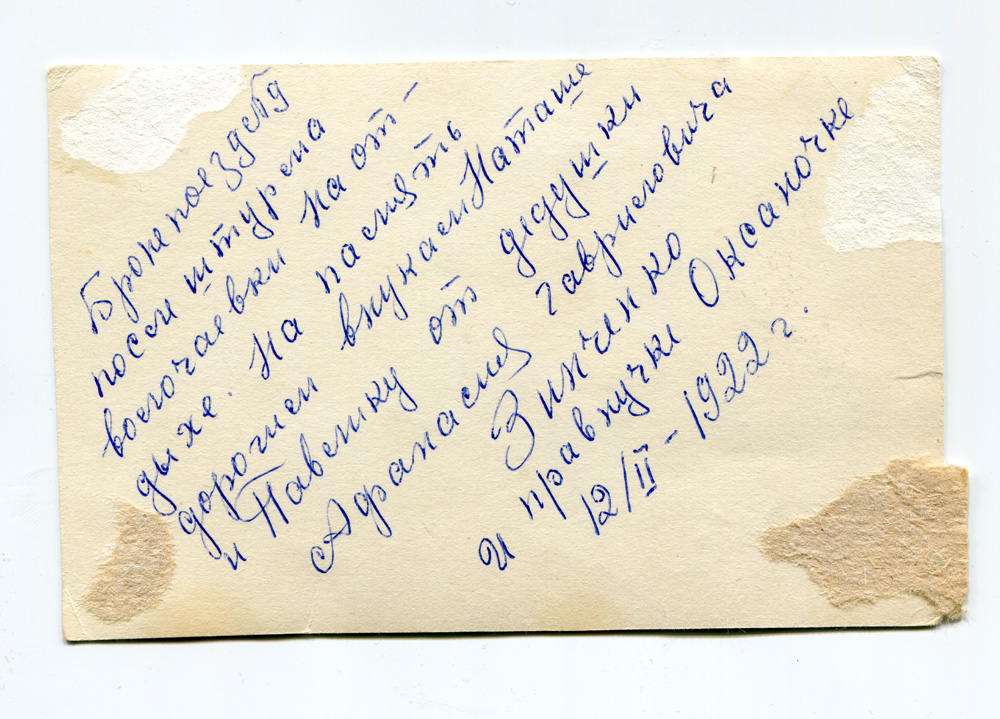 Бронепоезд №9
после штурма
волочаевки на от-
дыхе. На память
дорогим внукам Наташе
и Павлику от дедушки
Афанасия Гавриловича
Зинченко
и правнучке Оксаночке
12/II-1922 г.